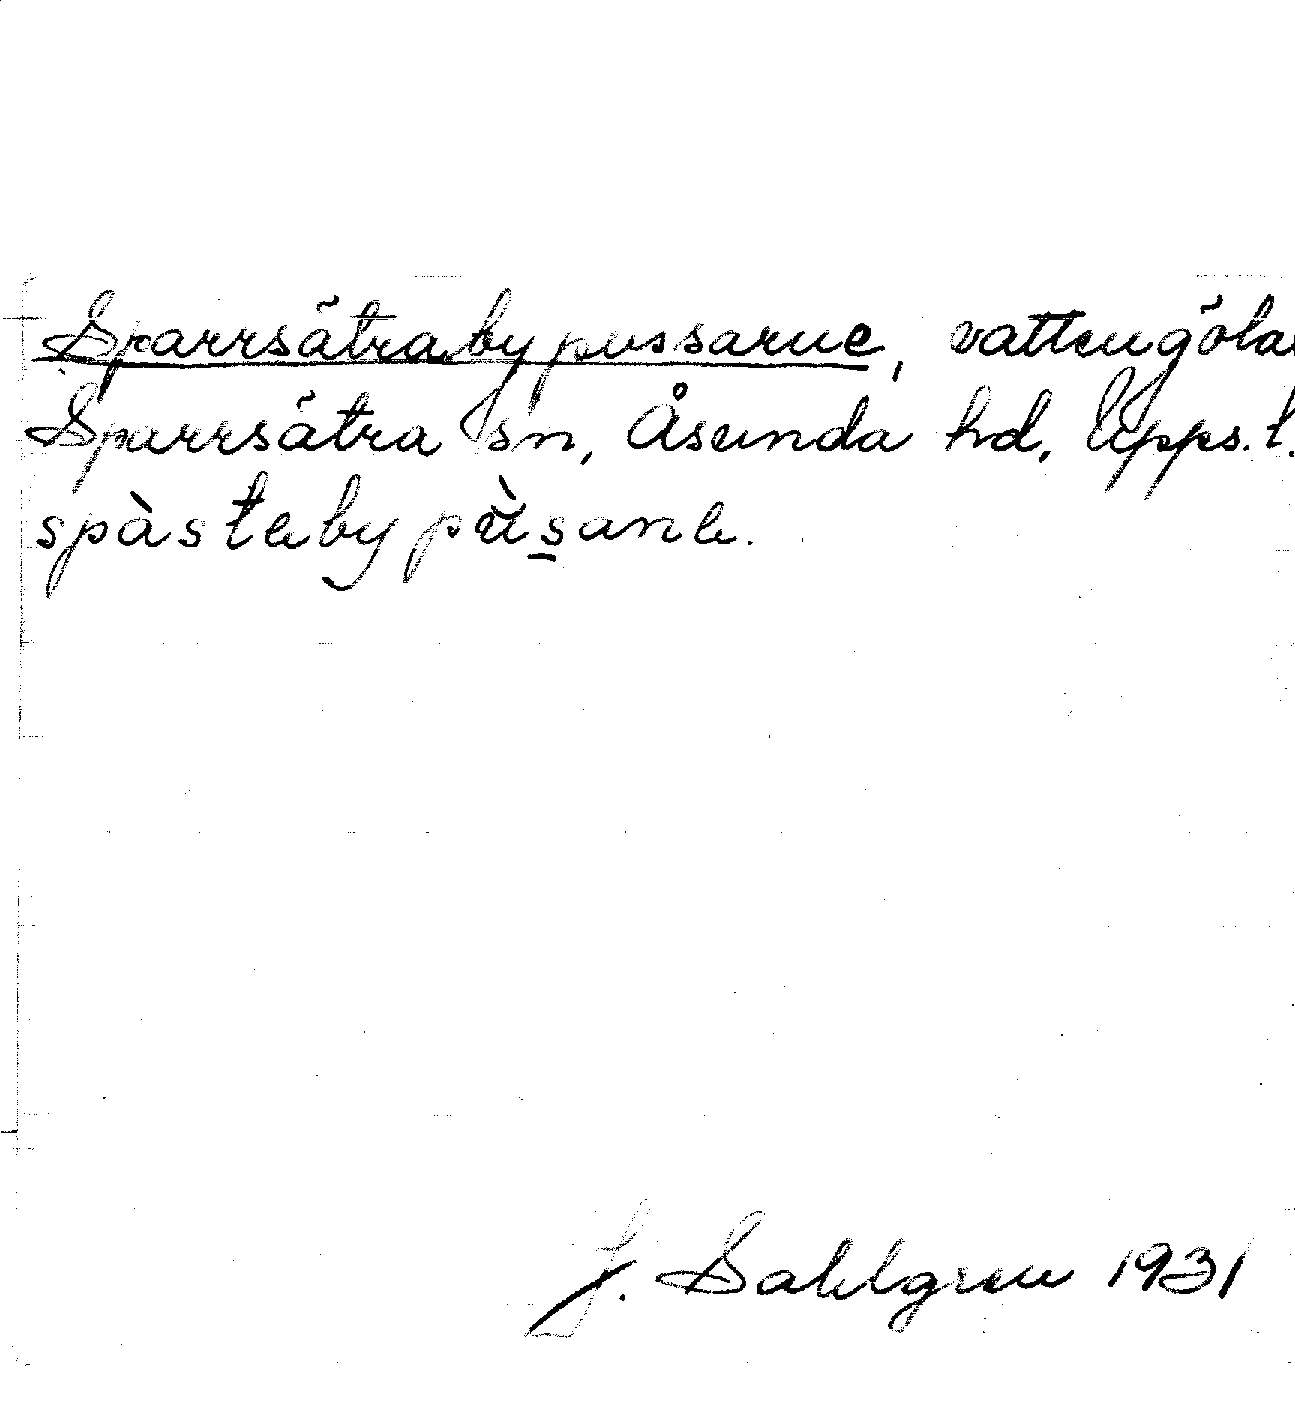 Sparrsätraby pussarne, vattengöla
Sparrsätra sn, Åsunda hd, Upps. l.
J. Sahlgren 1931